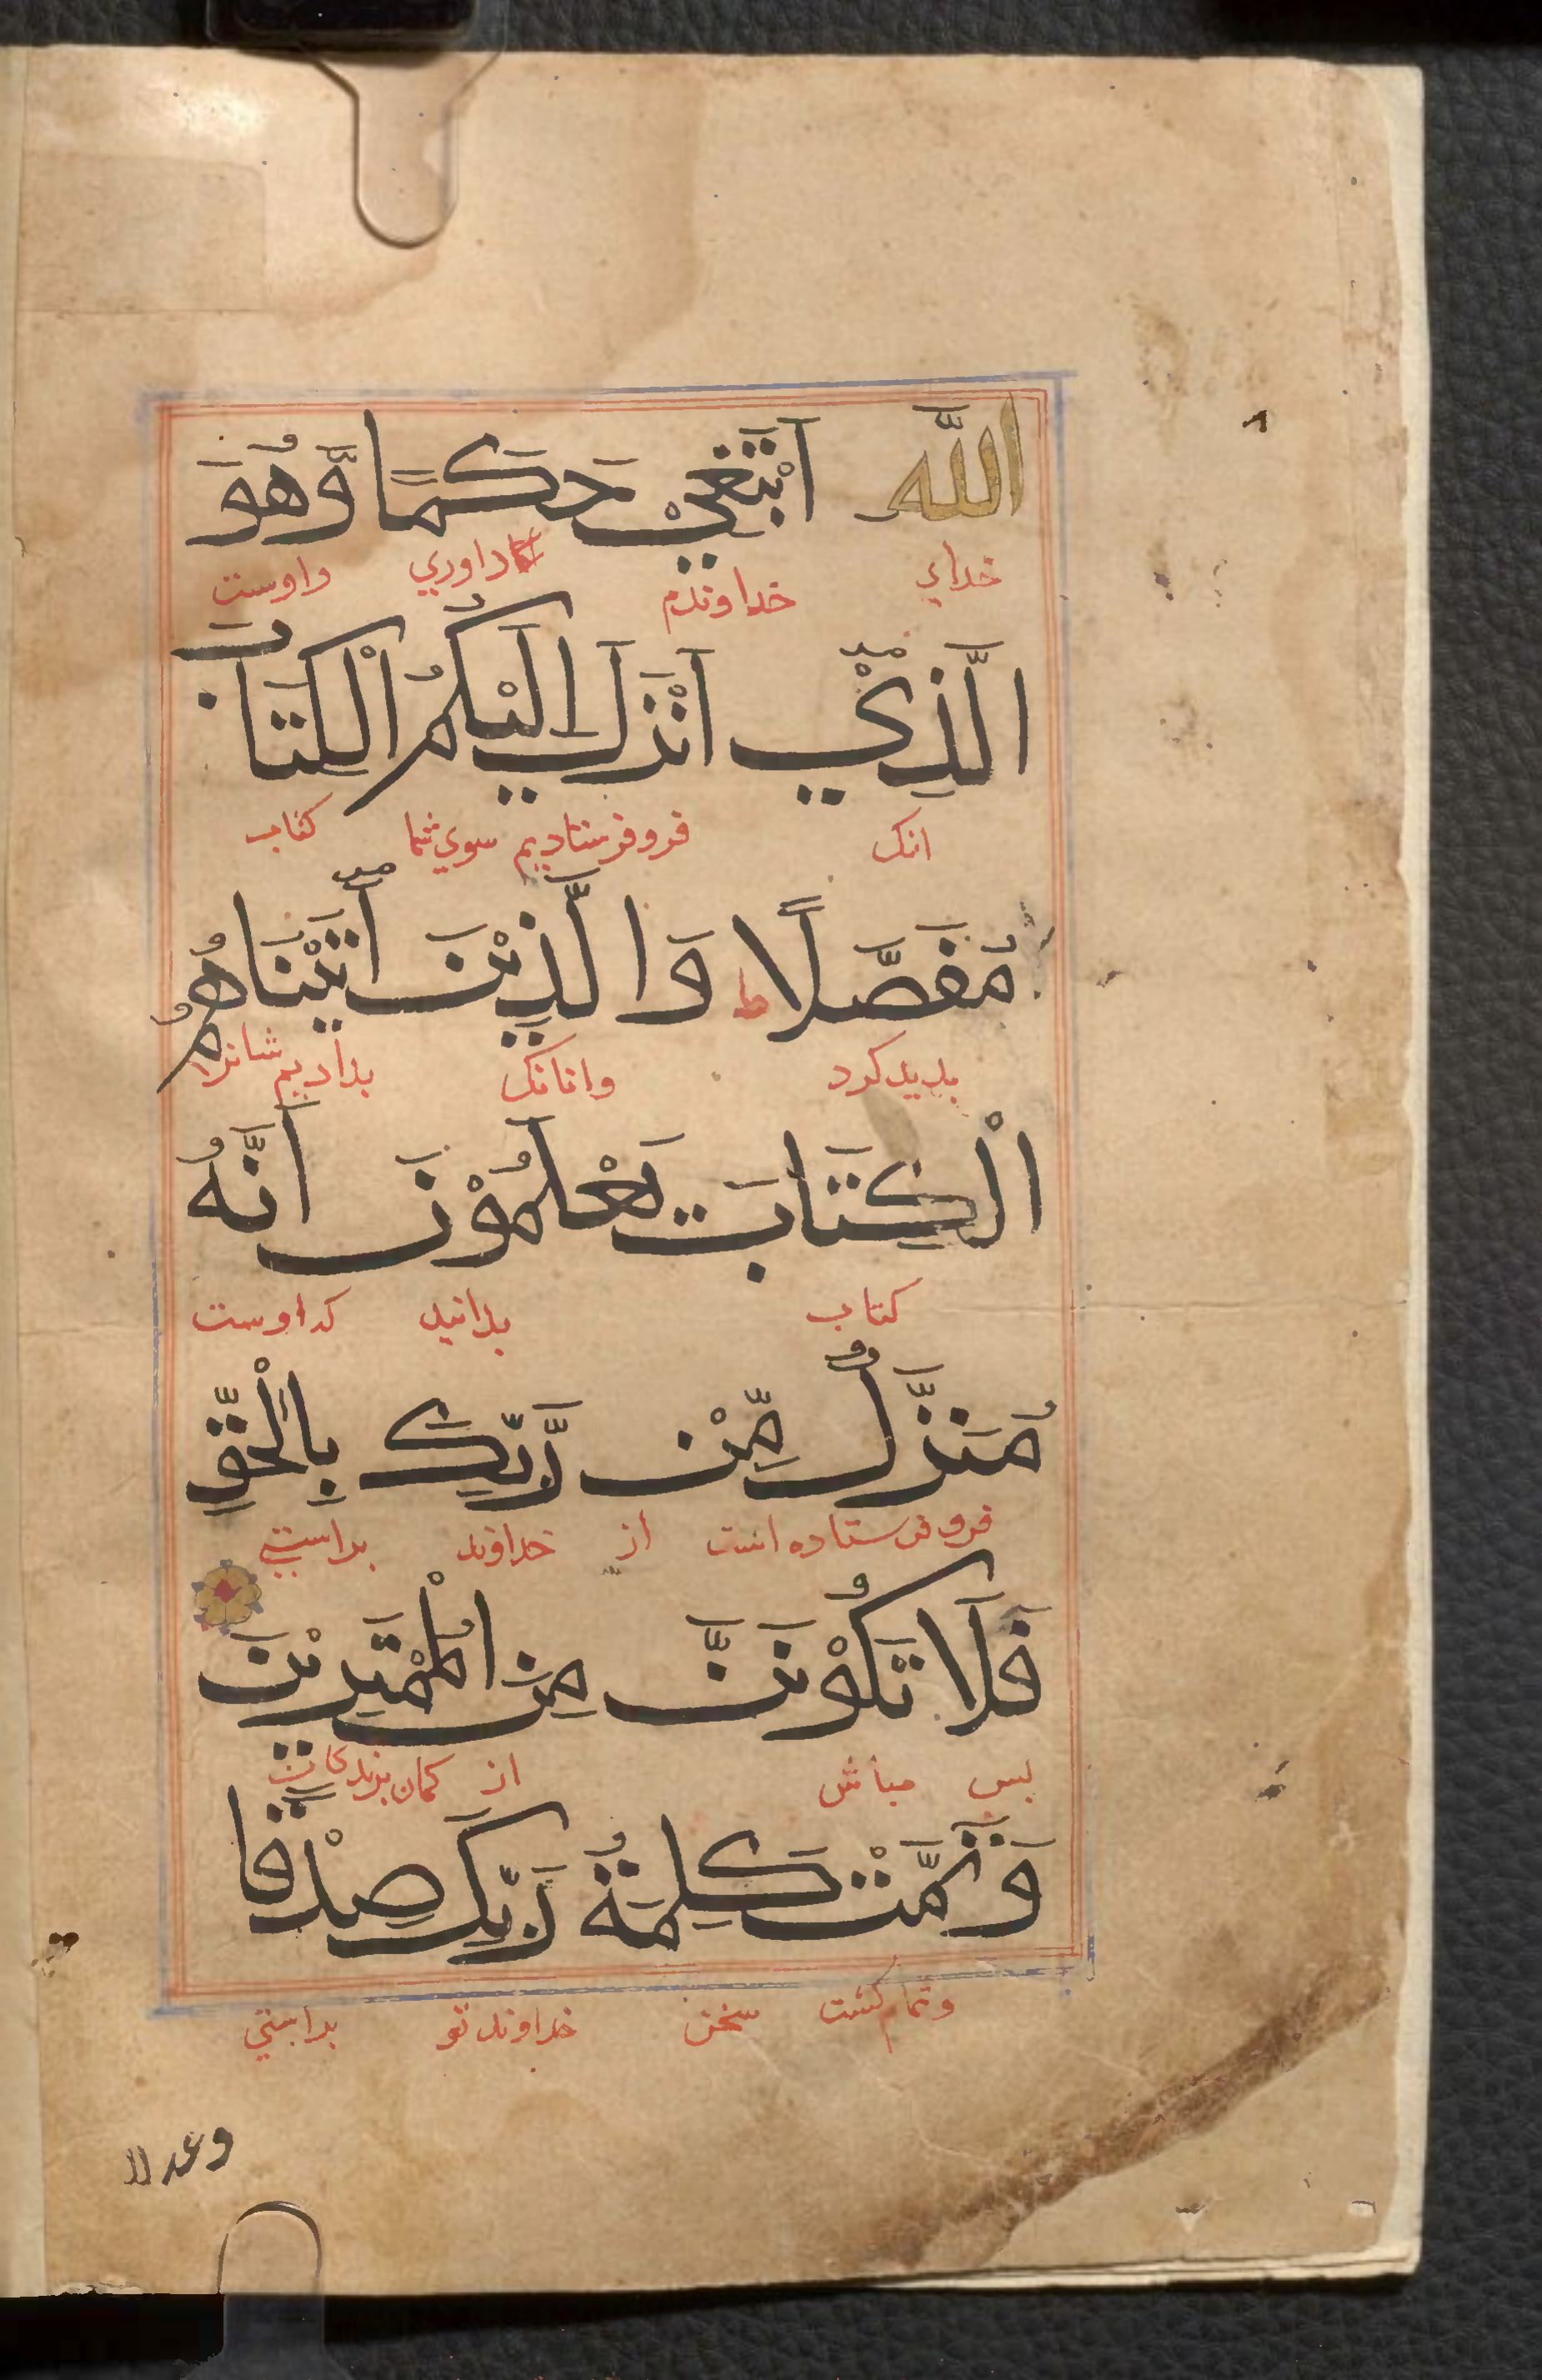 اللهِ اَبْتَغِيْ حَكَمًا وَّهُوَ
خدای خداوندم داوري واوست
الَّذِيْ اَنْزَلَ اِلَيْكُمُ الْكِتَابَ
انک فروفرستادیم سوي شما کتاب
مُفَصَّلًا ط وَالَّذِيْنَ اٰتَيْنَاهُمُ
بدیدکرد وانانک بدادیم شانرا
الْكِتَابَ يَعْلَمُوْنَ اَنَّهُ
کتاب بدانید که اوست
مُنَزَّلٌ مِّنْ رَّبِّكَ بِالْحَقِّ
فروفرستاده است از خداوند براستي
فَلَا تَكُوْنَنَّ مِنَ الْمُمْتَرِيْنَ
بس مباش از کمان برندکان
وَتَمَّتْ كَلِمَةُ رَبِّكَ صِدْقًا
وتمام کشت سخن خداوند تو براستي
وعدلا